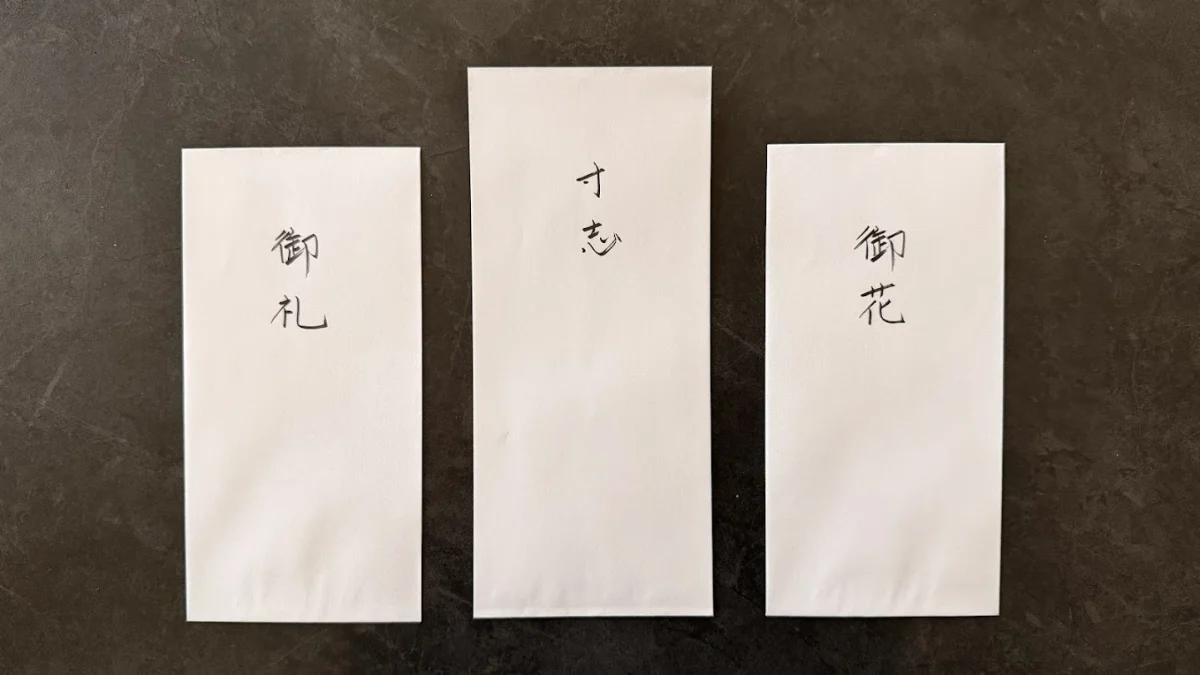 御礼
寸志
御花